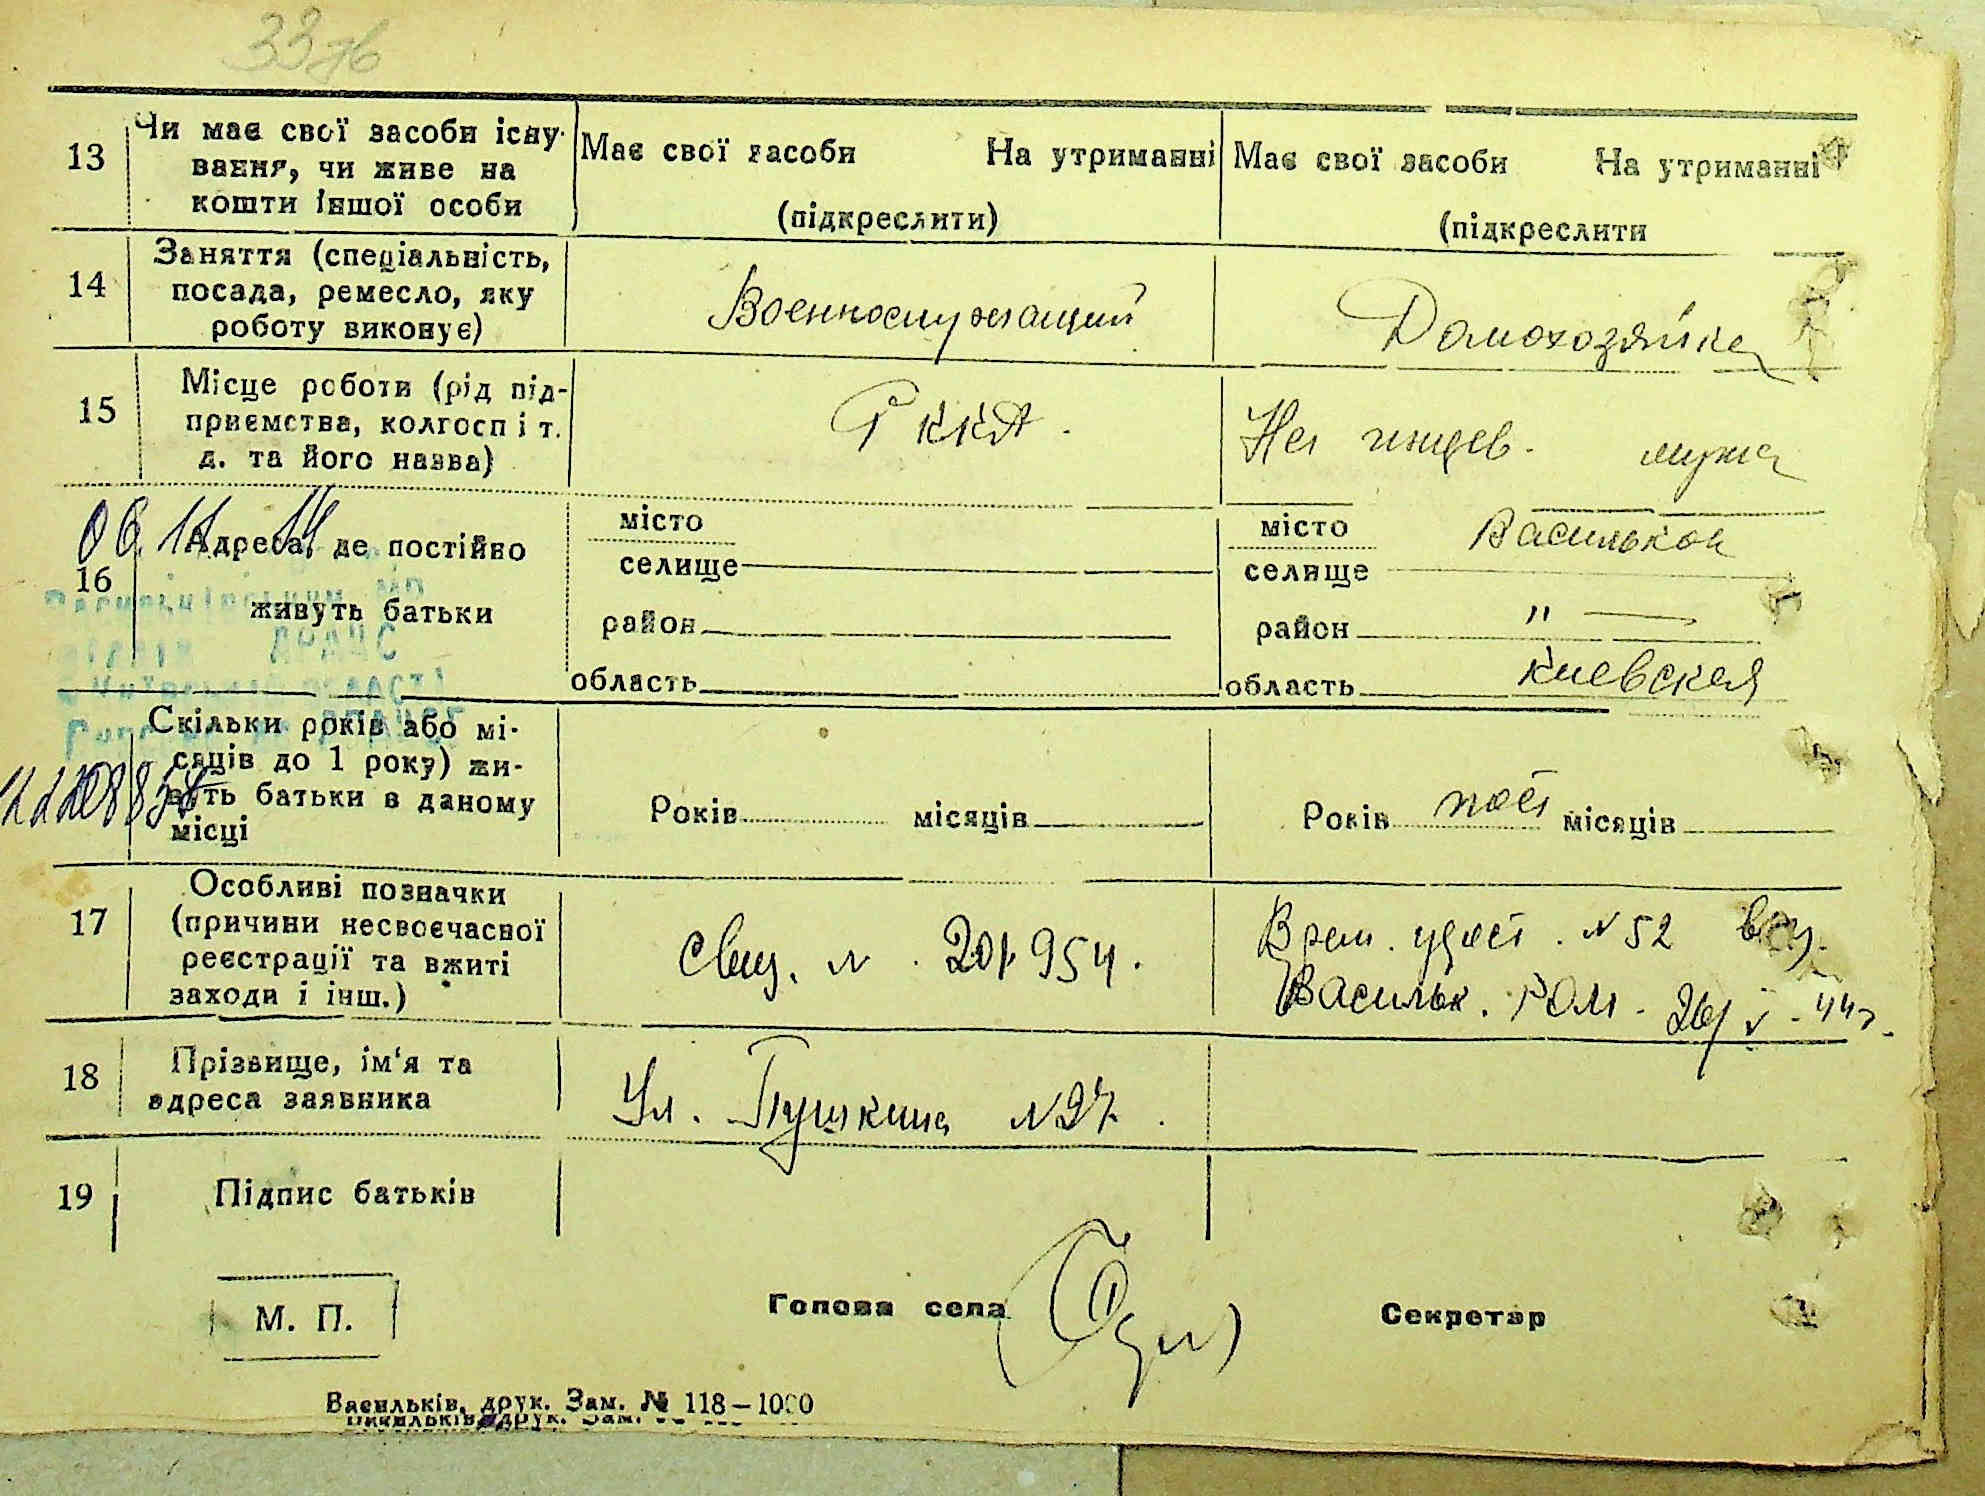 33
13
Чи має свої засоби існу-
вання, чи живе на
кошти іншої особи
Має свої засоби На утриманні
(підкреслити)
Має свої засоби На утриманні
(підкреслити
14
Заняття (спеціальність,
посада, ремесло, яку
роботу виконує)
Военнослужащий
Домохозяйка
15
Місце роботи (рід під-
приємства, колгосп і т.
д. та його назва)
РККА.
На иждев. мужа
16
Адреса, де постійно
живуть батьки
місто
селище
район
область
місто Васильков
селище
район " —
область Киевская
Скільки років або мі-
сяців до 1 року) жи-
вуть батьки в даному
місці
Років місяців
Років пост місяців
17
Особливі позначки
(причини несвоєчасної
реєстрації та вжиті
заходи і інш.)
№ 201954.
Врем. удост. № 52
Васильк. РОМ. 26/V-44г.
18
Прізвище, ім'я та
адреса заявника
Ул. Пушкина №27.
19
Підпис батьків
М. П.
Голова села
Секретар
Васильків, друк. Зам. № 118—1000